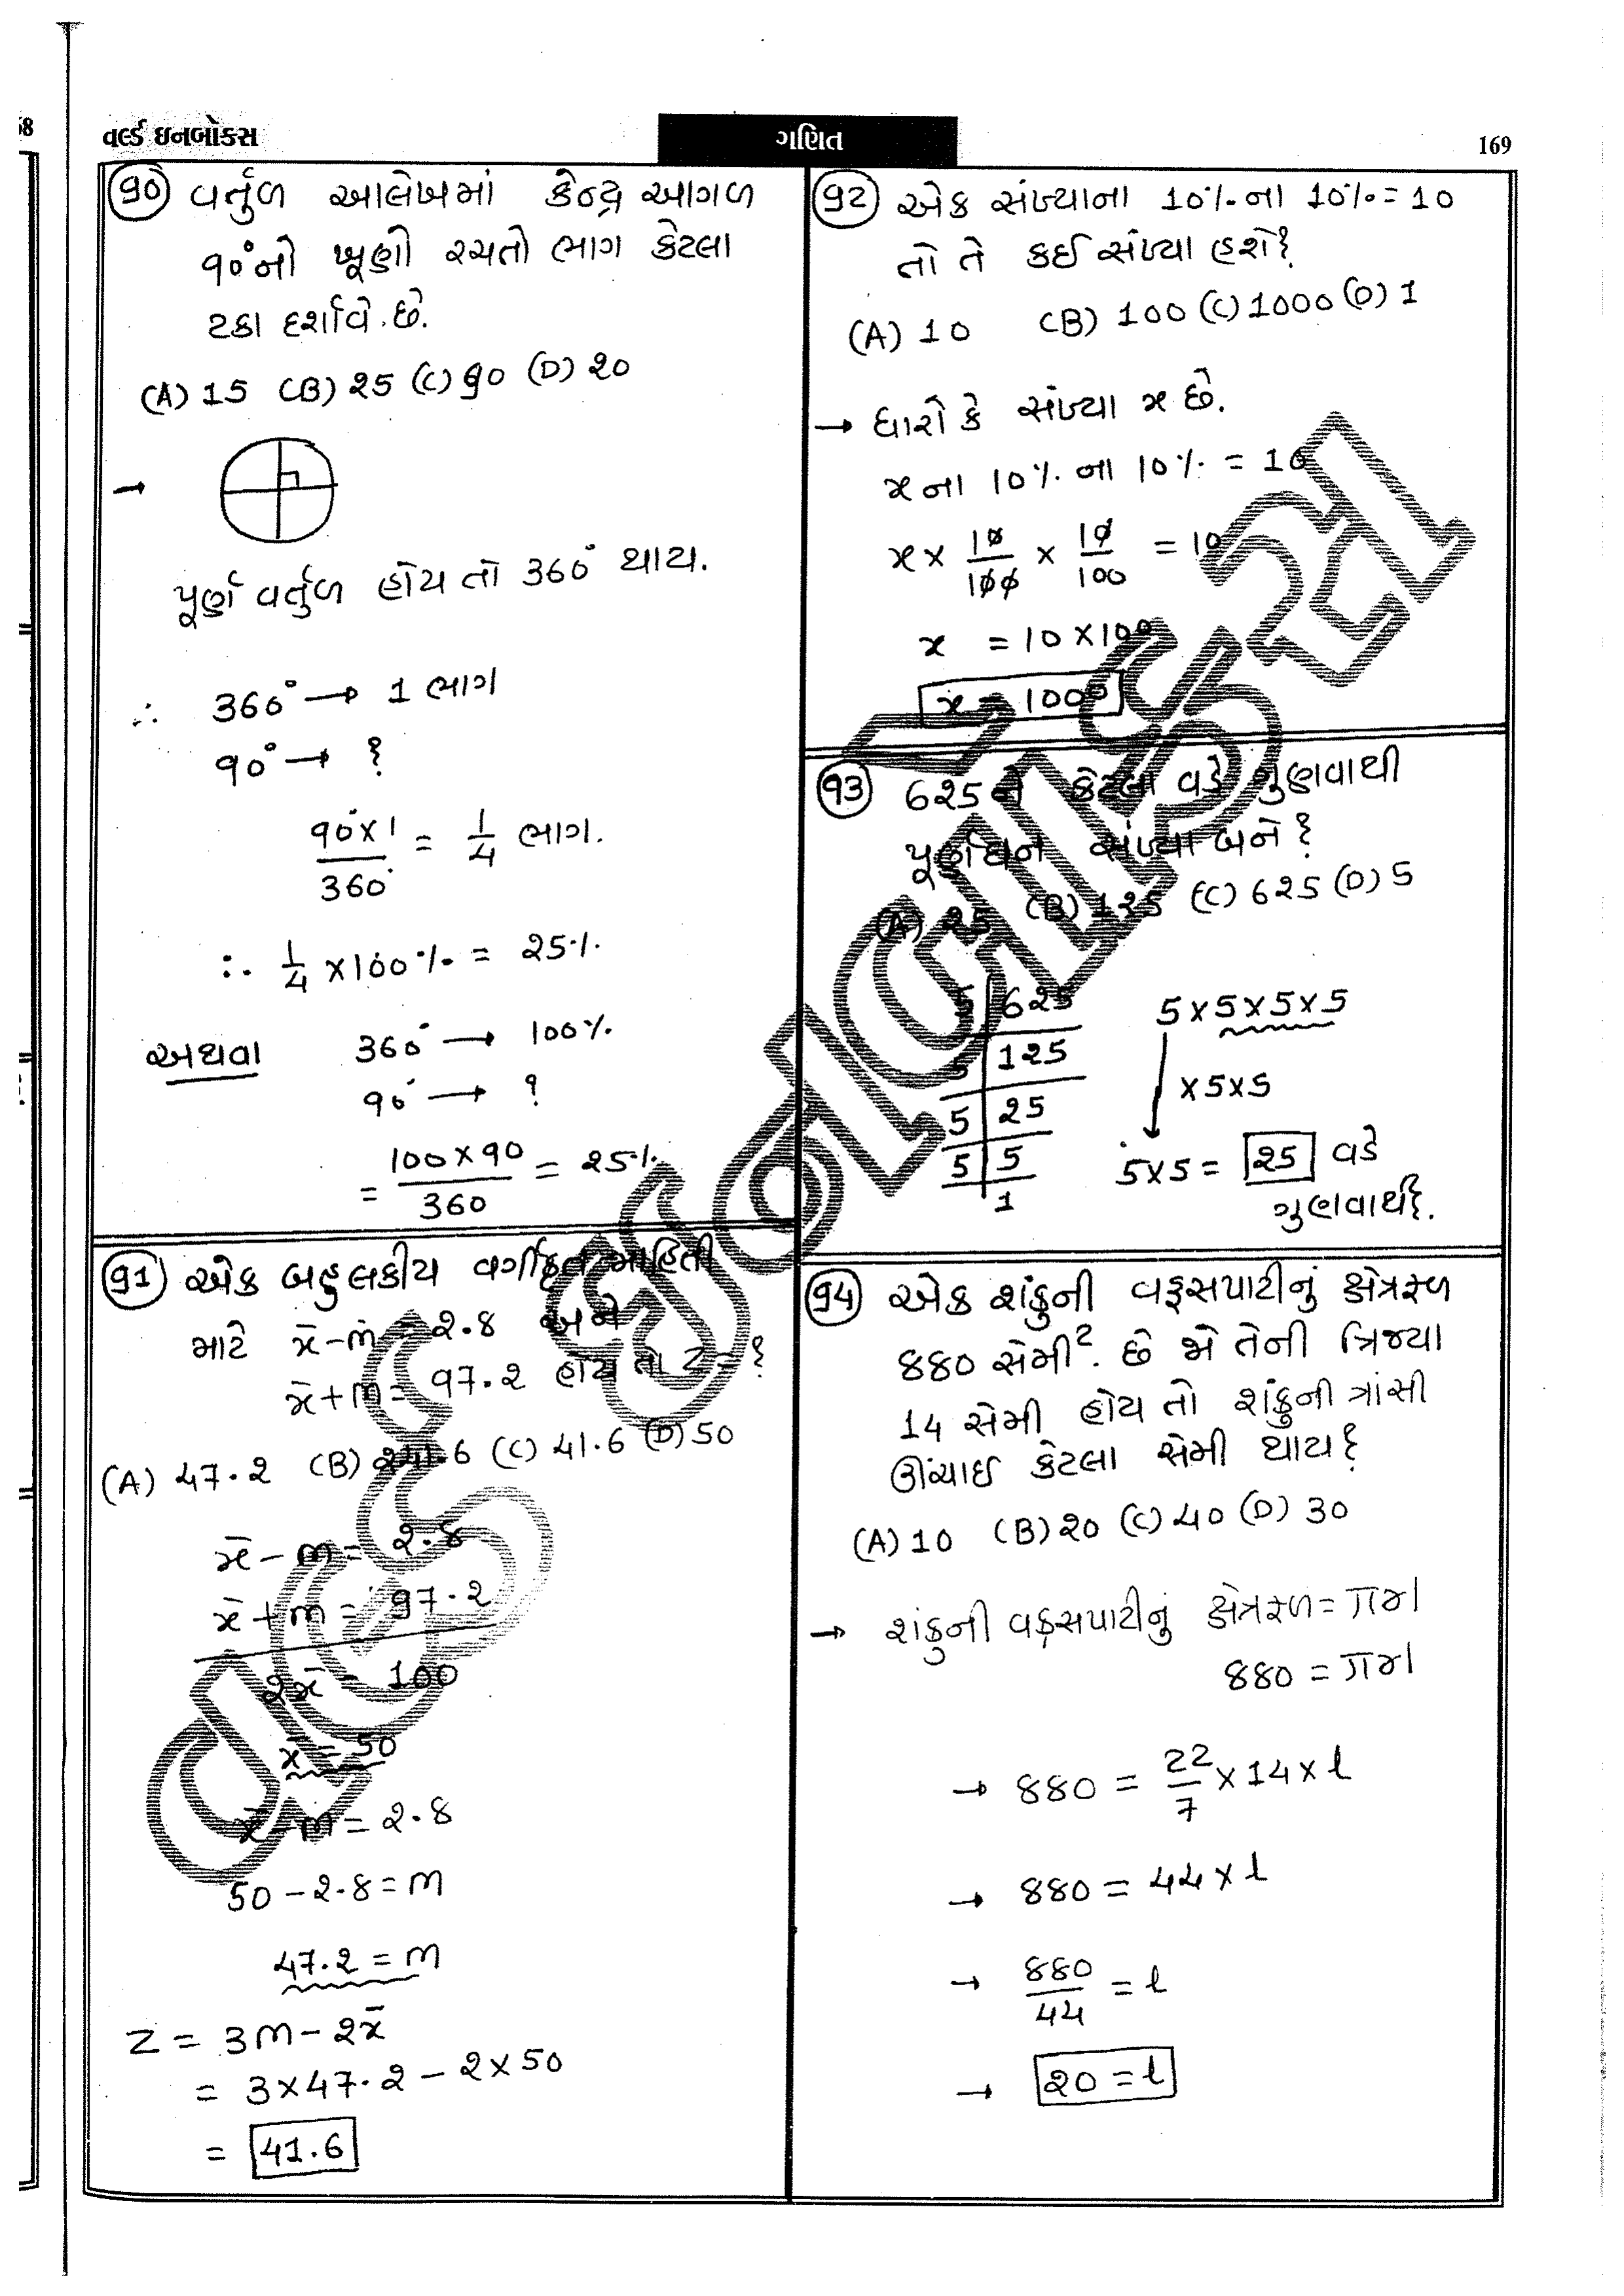 58
વર્લ્ડ ઇનબોક્સ
ગણિત
169
90 વર્તુળ આલેખમાં કેન્દ્ર આગળ
90°નો ખૂણો રચતો ભાગ કેટલા
ટકા દર્શાવે છે.
(A) 15 (B) 25 (C) 90 (D) 20
→
પૂર્ણ વર્તુળ હોય તો 360° થાય.
∴ 360° → 1 ભાગ
90° → ?
90° x 1 / 360° = 1/4 ભાગ.
∴ 1/4 x 100 % = 25%
અથવા 360° → 100%
90° → ?
= 100 x 90 / 360 = 25%
91 એક બહુલકીય વર્ગીકૃત માહિતી
માટે x̄ - m = 2.8 અને
x̄ + m = 97.2 હોય તો Z = ?
(A) 47.2 (B) 241.6 (C) 41.6 (D) 50
x̄ - m = 2.8
x̄ + m = 97.2
2x̄ = 100
x̄ = 50
x̄ - m = 2.8
50 - 2.8 = m
47.2 = m
Z = 3m - 2x̄
= 3 x 47.2 - 2 x 50
= 41.6
92 એક સંખ્યાના 10% ના 10% = 10
તો તે કઈ સંખ્યા હશે?
(A) 10 (B) 100 (C) 1000 (D) 1
→ ધારો કે સંખ્યા x છે.
x ના 10% ના 10% = 10
x x 10/100 x 10/100 = 10
x = 10 x 100
x = 1000
93 625 ને કેટલા વડે ગુણવાથી
પૂર્ણઘન સંખ્યા બને?
(A) 25 (B) 125 (C) 625 (D) 5
5 | 625
5 | 125
5 | 25
5 | 5
1
5 x 5 x 5 x 5
x 5 x 5
5 x 5 = 25 વડે
ગુણવાથી.
94 એક શંકુની વક્રસપાટીનું ક્ષેત્રફળ
880 સેમી². છે જો તેની ત્રિજ્યા
14 સેમી હોય તો શંકુની ત્રાંસી
ઊંચાઈ કેટલા સેમી થાય?
(A) 10 (B) 20 (C) 40 (D) 30
→ શંકુની વક્રસપાટીનું ક્ષેત્રફળ = πrl
880 = πrl
→ 880 = 22/7 x 14 x l
→ 880 = 44 x l
→ 880/44 = l
→ 20 = l